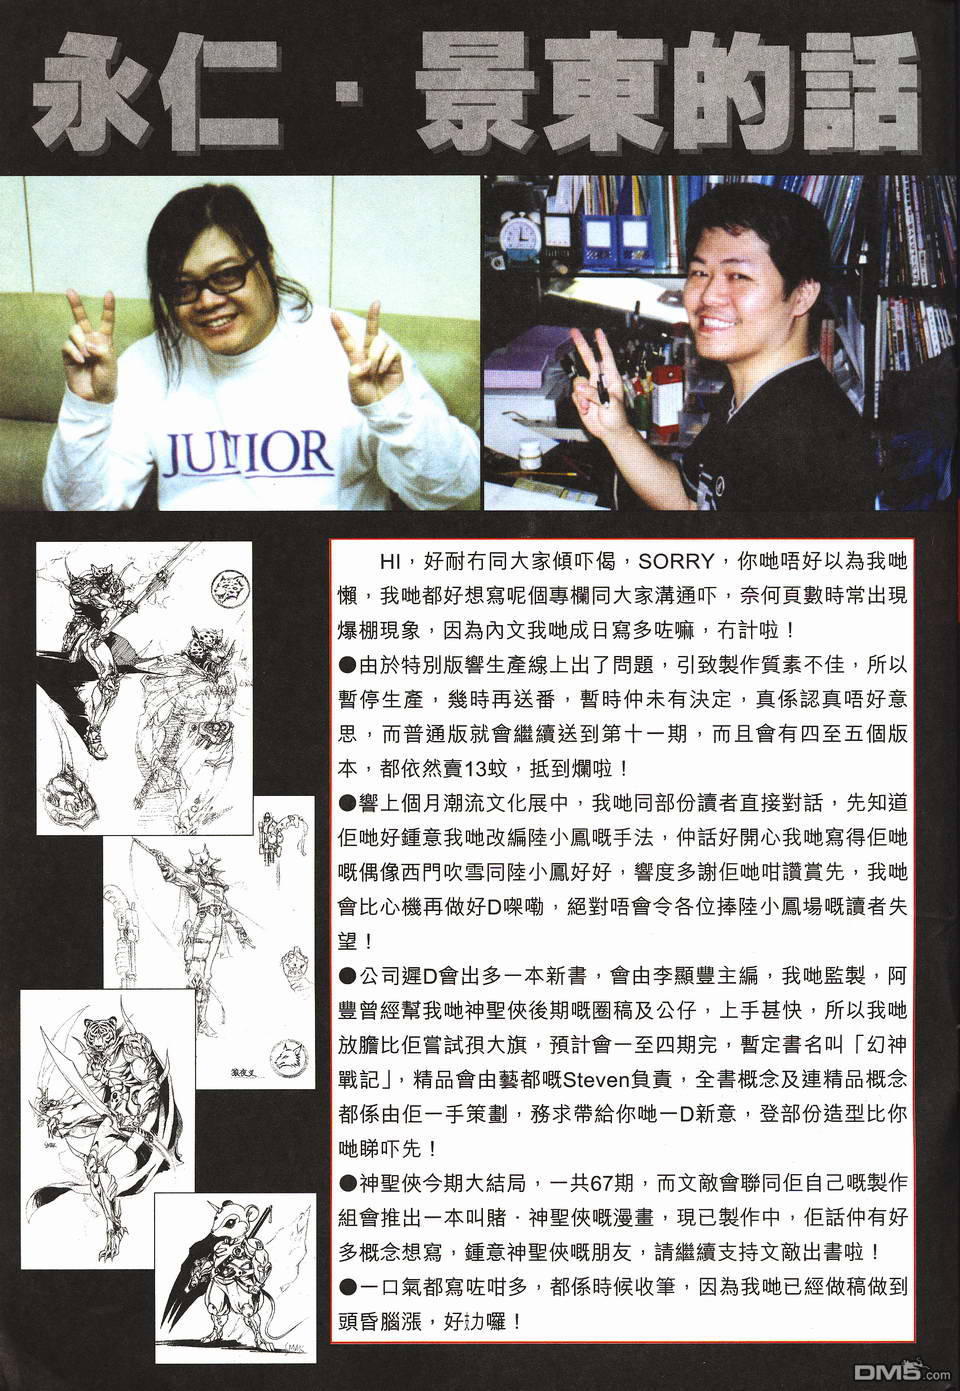 永仁·景東的話
JUNIOR
HI，好耐冇同大家傾吓偈，SORRY，你哋唔好以為我哋
懶，我哋都好想寫呢個專欄同大家溝通吓，奈何頁數時常出現
爆棚現象，因為內文我哋成日寫多咗嘛，冇計啦！
●由於特別版響生產線上出了問題，引致製作質素不佳，所以
暫停生產，幾時再送番，暫時仲未有決定，真係認真唔好意
思，而普通版就會繼續送到第十一期，而且會有四至五個版
本，都依然賣13蚊，抵到爛啦！
●響上個月潮流文化展中，我哋同部份讀者直接對話，先知道
佢哋好鍾意我哋改編陸小鳳嘅手法，仲話好開心我哋寫得佢哋
嘅偶像西門吹雪同陸小鳳好好，響度多謝佢哋咁讚賞先，我哋
會比心機再做好D㗎嘞，絕對唔會令各位捧陸小鳳場嘅讀者失
望！
●公司遲D會出多一本新書，會由李顯豐主編，我哋監製，阿
豐曾經幫我哋神聖俠後期嘅圈稿及公仔，上手甚快，所以我哋
放膽比佢嘗試孭大旗，預計會一至四期完，暫定書名叫「幻神
戰記」，精品會由藝都嘅Steven負責，全書概念及連精品概念
都係由佢一手策劃，務求帶給你哋一D新意，登部份造型比你
哋睇吓先！
●神聖俠今期大結局，一共67期，而文敵會聯同佢自己嘅製作
組會推出一本叫賭．神聖俠嘅漫畫，現已製作中，佢話仲有好
多概念想寫，鍾意神聖俠嘅朋友，請繼續支持文敵出書啦！
●一口氣都寫咗咁多，都係時候收筆，因為我哋已經做稿做到
頭昏腦漲，好攰囉！
狼夜叉
DM5.com